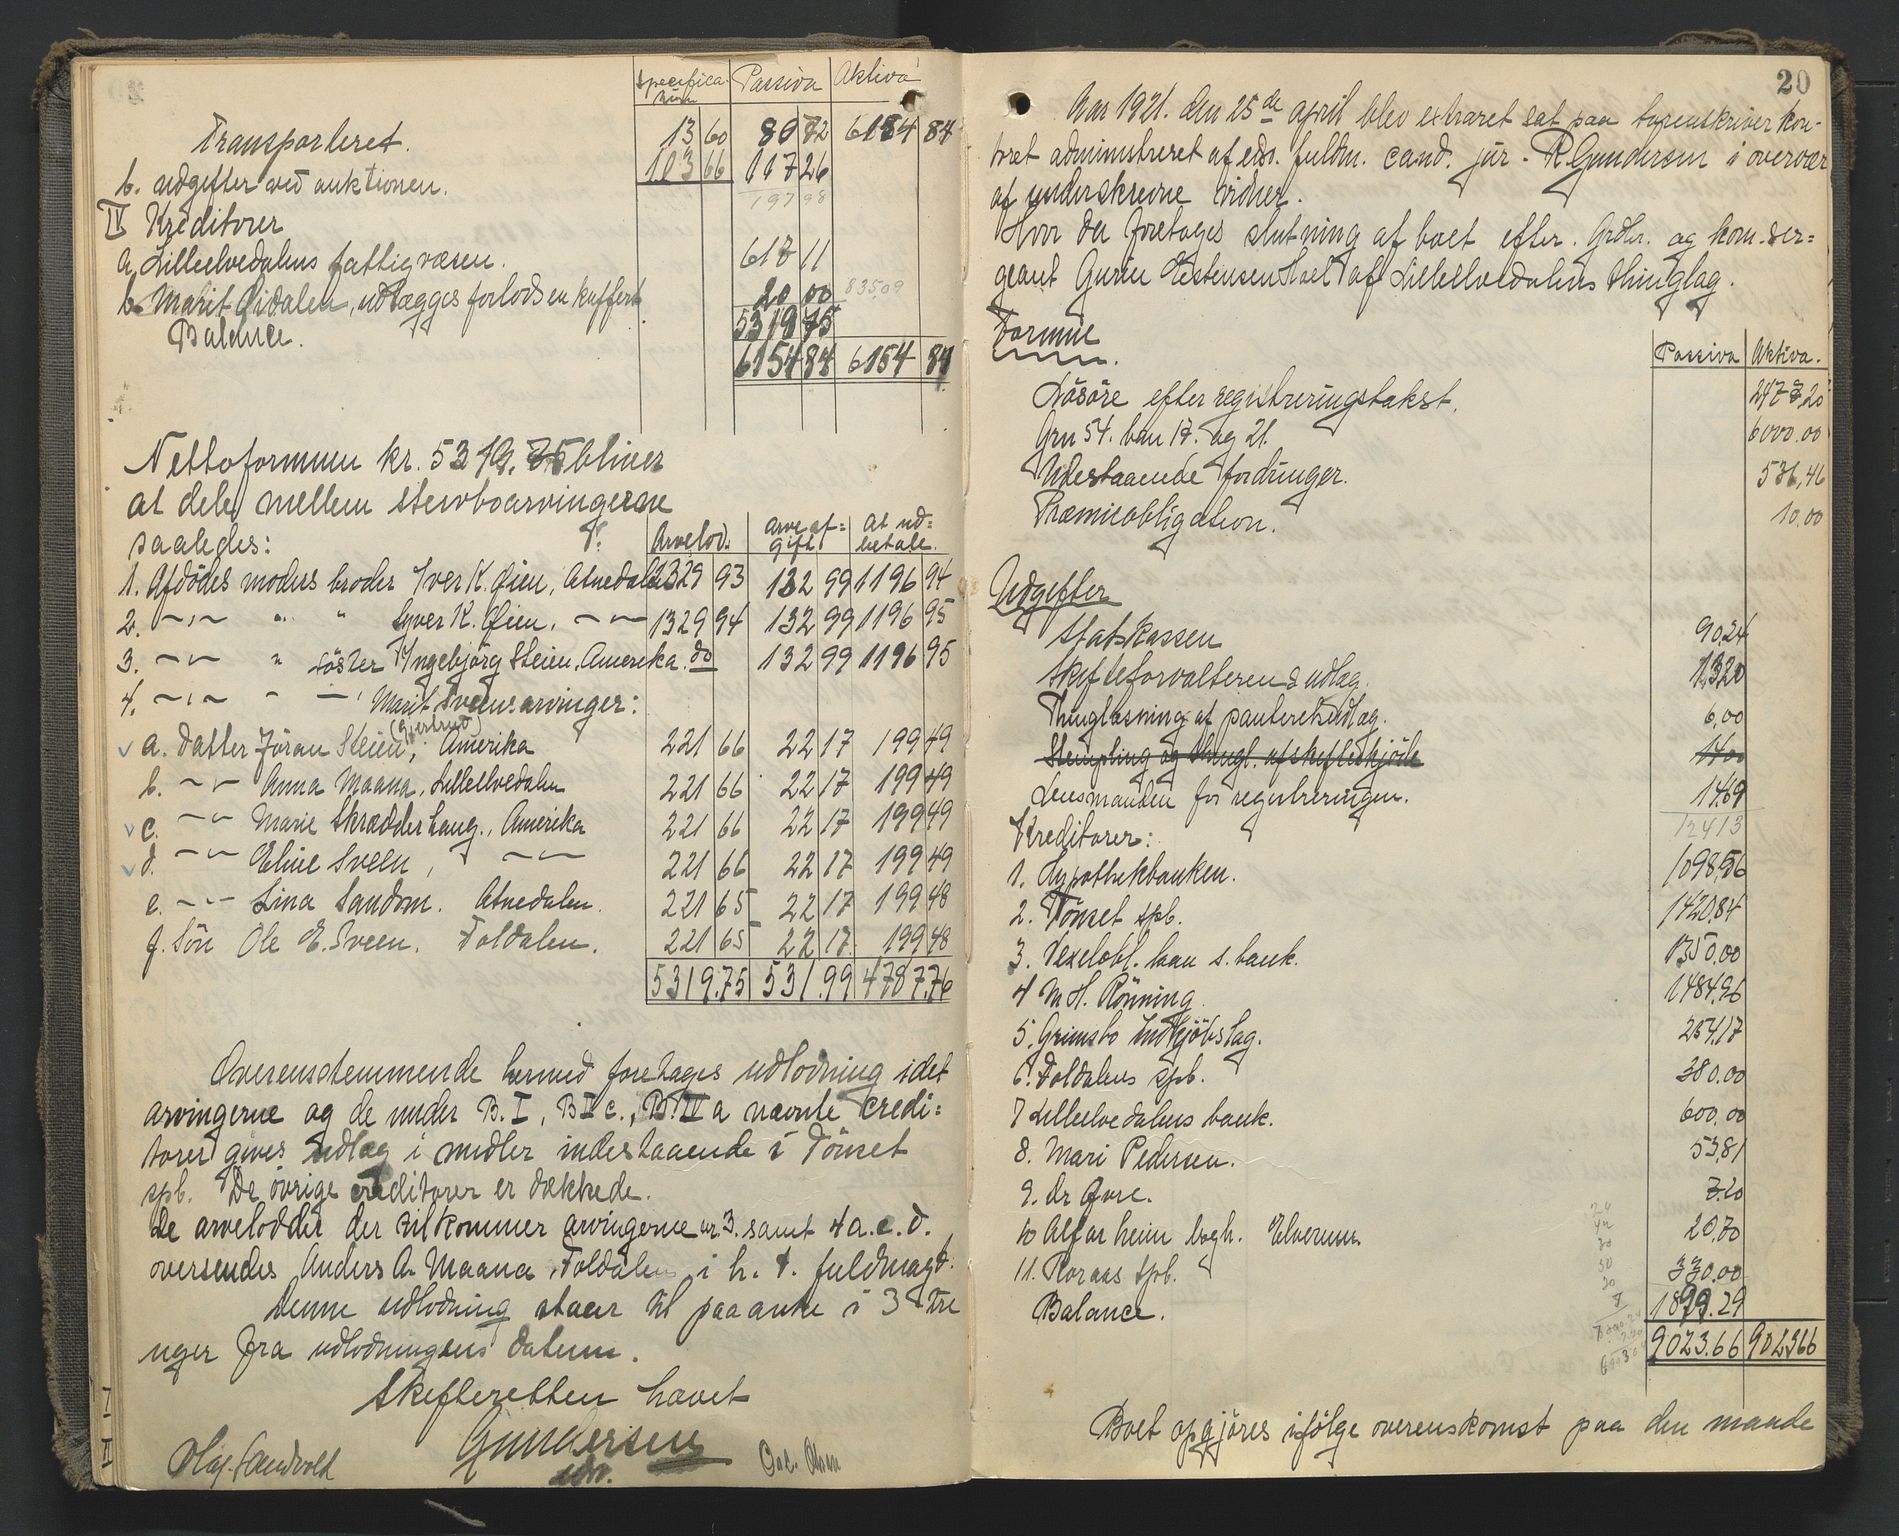 Specifica- Passiva Aktiva
tion
Transporteret. 13 60 80 72 6154 84
b. udgifter ved auktionen. 103 66 117 26
197 98
IV Kreditorer
a. Lilleelvedalens fattigvæsen. 617 11
b. Marit Øidalen, udlægges forlods en kuffert 20 00 835,09
Balance. 5319 75
6154 84 6154 84
Nettoformuen kr. 5319.75 bliver
at dele mellem stervboarvingerne
saaledes: Arvelod: arveaf= gift At ud= betale.
1. Afdödes moders broder Iver K. Øien, Atnedalen 1329 93 132 99 1196 94
2. — " — " " Syver K. Øien, — " — 1329 94 132 99 1196 95
3. — " — " söster Ingebjörg Steien, Amerika. do 132 99 1196 95
4. — " — " — " Marit Sveens arvinger:
(Gjertrud)
a. datter Jöran Steien, Amerika 221 66 22 17 199 49
b. — " — Anna Maana, Lilleelvedalen 221 66 22 17 199 49
c. — " — Marie Skrædderhaug., Amerika 221 66 22 17 199 49
d. — " — Eline Sveen, — " — 221 66 22 17 199 49
e. — " — Lina Sandom. Atnedalen. 221 65 22 17 199 48
f. Sön Ole E. Sveen. Foldalen. 221 65 22 17. 199 48
5319.75 531.99 4787.76
Overensstemmende hermed foretages udlodning idet
arvingerne og de under B. I, B II c., B. IV a nævnte credi=
torer gives udlæg i midler indestaaende i Tönset
spb. De övrige creditorer er dækkede.
De arvelodder der tilkommer arvingerne nr. 3. samt 4 a. c. d.
oversendes Anders A. Maana, Foldalen i h. t. fuldmagt.
Denne udlodning staar til paaanke i 3 tre
uger fra udlodningens datum.
Skifteretten hævet
Gundersen
edsv.
Olaf Sandvold
Ole Olsen
20
Aar 1921. den 25de april blev extraret sat paa sorenskriverkon-
toret administreret af eds. fuldm. cand. jur. R Gundersen i overvær
af underskrevne vidner.
Hvor der foretages slutning af boet efter. Grdbr. og kom.ser=
geant Gurin Kestensen Hoel af Lilleelvedalens thinglag.
Formue
Passiva Aktiva.
Lösöre efter registreringstakst. 2477,20
Grn 54. bnn 17. og 21. 6000.00
Udestaaende fordringer. 536,46
Præmieobligation. 10,00
Udgifter
Statskassen 90,24
Skifteforvalterens udlæg. 13,20
Thinglæsning af panteretsudlæg. 6,00
Stempling og thingl. af skifteskjöde 14.00
Lensmanden for registreringen. 14,69
Kreditorer: 124,13
1. Hypothekbanken. 1098,56
2. Tönset spb. 1420,84
3. Vexelobl. laan s. bank. 1350,00
4 M H. Rönning. 1484,96
5. Grimsbo Indkjöbslag. 254,17
6. Foldalens spb. 380.00
7 Lilleelvedalens bank. 600,00
8. Mari Pedersen. 53,81
9. Dr Øvre. 7.20
10 Alfarheim bogh. Elverum. 20,70
11. Roraas spb. 330.00
Balance. 1899.29
9023.66 9023.66
Boet opgjöres ifölge overenskomst paa den maade